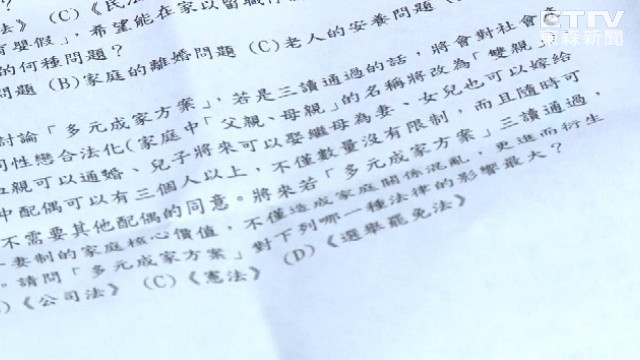 ETTV
東森新聞
法》 (C)《民法
育嬰假」,希望能在家以留職停
的何種問題?
問題 (B)家庭的離婚問題 (C)老人的安養問題 (
討論「多元成家方案」,若是三讀通過的話,將會對社會產
同性戀合法化(家庭中「父親、母親」的名稱將改為「雙親」
親可以通婚、兒子將來可以娶繼母為妻、女兒也可以嫁給
中配偶可以有三個人以上,不僅數量沒有限制,而且隨時可
不需要其他配偶的同意。將來若「多元成家方案」三讀通過,
一妻制的家庭核心價值,不僅造成家庭關係混亂,更進而衍生
。請問「多元成家方案」對下列哪一種法律的影響最大?
)《公司法》 (C)《憲法》 (D)《選舉罷免法》